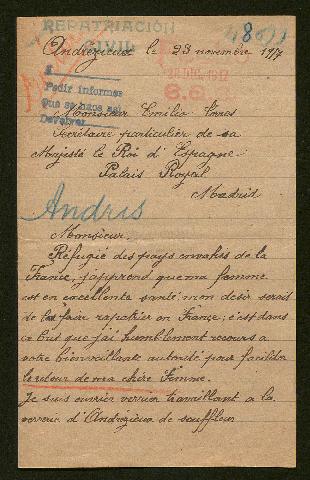 REPATRIACIÓN
CIVIL
Andrézieux le 23 novembre 1917
Pedir informes
Que se hizo así
Devolver
S.E.
Monsieur Emilio Torres
Secrétaire particulier de sa
Majesté le Roi d'Espagne
Palais Royal
Madrid
Andris
Monsieur,
Réfugié des pays envahis de la
France, j'apprend que ma femme
est en excellente santé: mon désir serait
de la faire rapatrier en France; c'est dans
ce but que j'ai humblement recours a
votre bienveillante autorité pour faciliter
le retour de ma chère Femme.
Je suis ouvrier verrier travaillant a la
verrerie d'Andrézieux de souffleur